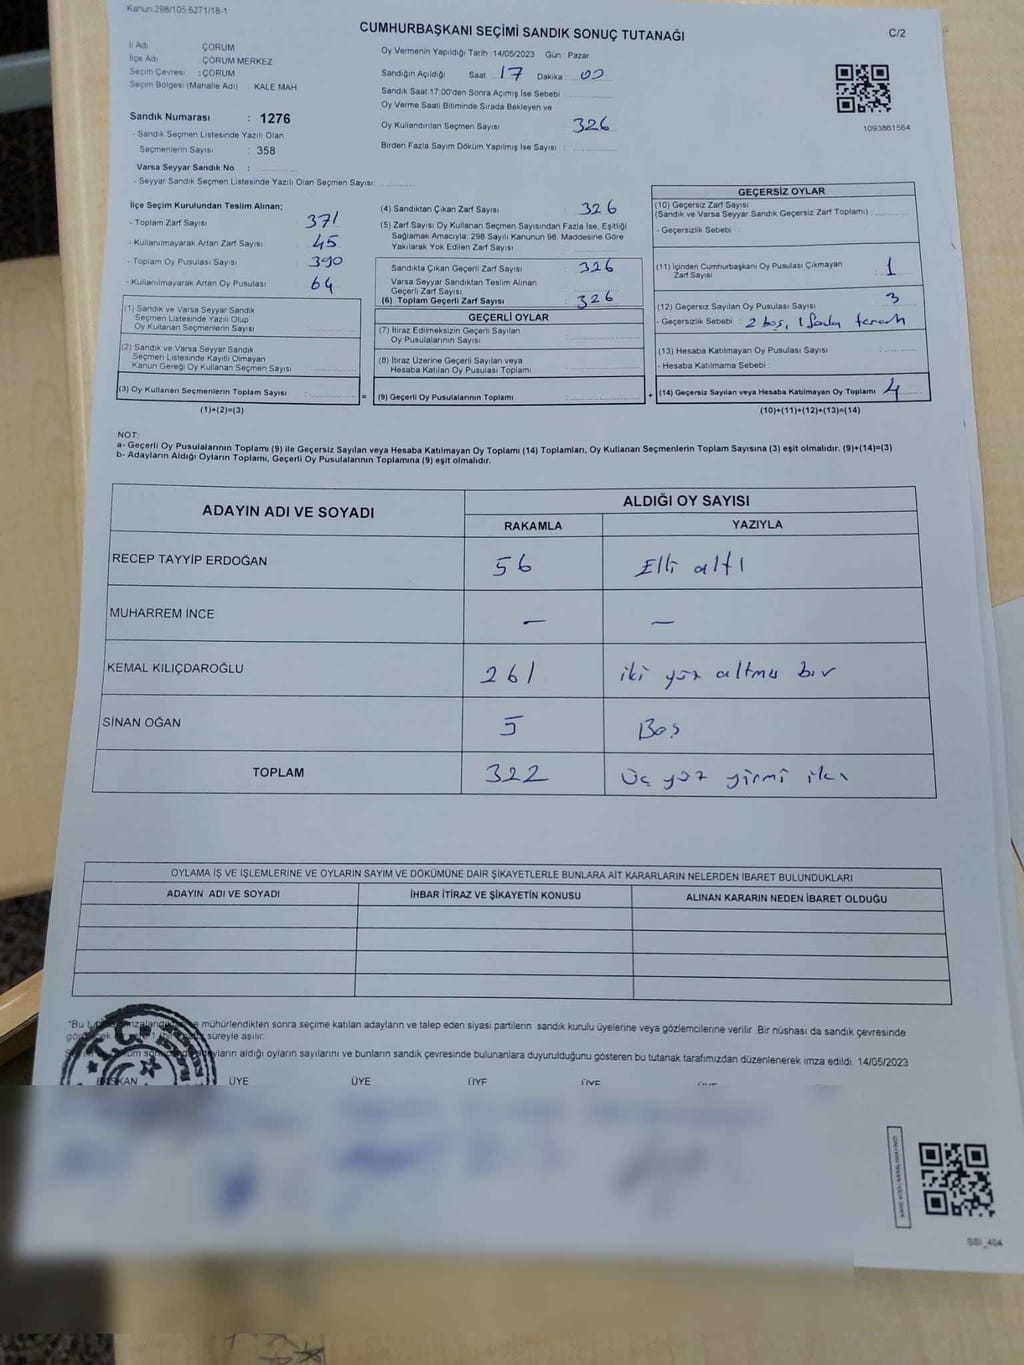 Kanun:298/105 6271/18-1
CUMHURBAŞKANI SEÇİMİ SANDIK SONUÇ TUTANAĞI
C/2
İl Adı ÇORUM
İlçe Adı ÇORUM MERKEZ
Seçim Çevresi : ÇORUM
Seçim Bölgesi (Mahalle Adı) KALE MAH
Sandık Numarası : 1276
- Sandık Seçmen Listesinde Yazılı Olan
Seçmenlerin Sayısı : 358
Varsa Seyyar Sandık No :
- Seyyar Sandık Seçmen Listesinde Yazılı Olan Seçmen Sayısı:
Oy Vermenin Yapıldığı Tarih :14/05/2023 Gün : Pazar
Sandığın Açıldığı Saat : 17 Dakika : 00
Sandık Saat 17:00'den Sonra Açımış İse Sebebi
Oy Verme Saati Bitiminde Sırada Bekleyen ve
Oy Kullandırılan Seçmen Sayısı : 326
Birden Fazla Sayım Döküm Yapılmış İse Sayısı :
1093861564
İlçe Seçim Kurulundan Teslim Alınan;
- Toplam Zarf Sayısı 371
- Kullanılmayarak Artan Zarf Sayısı 45
- Toplam Oy Pusulası Sayısı 390
- Kullanılmayarak Artan Oy Pusulası 64
(1) Sandık ve Varsa Seyyar Sandık
Seçmen Listesinde Yazılı Olup
Oy Kullanan Seçmenlerin Sayısı
(2) Sandık ve Varsa Seyyar Sandık
Seçmen Listesinde Kayıtlı Olmayan
Kanun Gereği Oy Kullanan Seçmen Sayısı
(3) Oy Kullanan Seçmenlerin Toplam Sayısı =
(1)+(2)=(3)
(4) Sandıktan Çıkan Zarf Sayısı : 326
(5) Zarf Sayısı Oy Kullanan Seçmen Sayısından Fazla İse, Eşitliği
Sağlamak Amacıyla; 298 Sayılı Kanunun 98. Maddesine Göre
Yakılarak Yok Edilen Zarf Sayısı :
Sandıkta Çıkan Geçerli Zarf Sayısı : 326
Varsa Seyyar Sandıktan Teslim Alınan
Geçerli Zarf Sayısı
(6) Toplam Geçerli Zarf Sayısı : 326
GEÇERLİ OYLAR
(7) İtiraz Edilmeksizin Geçerli Sayılan
Oy Pusulalarının Sayısı
(8) İtiraz Üzerine Geçerli Sayılan veya
Hesaba Katılan Oy Pusulası Toplamı
(9) Geçerli Oy Pusulalarının Toplamı +
GEÇERSİZ OYLAR
(10) Geçersiz Zarf Sayısı
(Sandık ve Varsa Seyyar Sandık Geçersiz Zarf Toplamı)
- Geçersizlik Sebebi :
(11) İçinden Cumhurbaşkanı Oy Pusulası Çıkmayan
Zarf Sayısı 1
(12) Geçersiz Sayılan Oy Pusulası Sayısı : 3
- Geçersizlik Sebebi : 2 boş, 1 fazla tercih
(13) Hesaba Katılmayan Oy Pusulası Sayısı
- Hesaba Katılmama Sebebi :
(14) Geçersiz Sayılan veya Hesaba Katılmayan Oy Toplamı : 4
(10)+(11)+(12)+(13)=(14)
NOT:
a- Geçerli Oy Pusulalarının Toplamı (9) ile Geçersiz Sayılan veya Hesaba Katılmayan Oy Toplamı (14) Toplamları, Oy Kullanan Seçmenlerin Toplam Sayısına (3) eşit olmalıdır. (9)+(14)=(3)
b- Adayların Aldığı Oyların Toplamı, Geçerli Oy Pusulalarının Toplamına (9) eşit olmalıdır.
ADAYIN ADI VE SOYADI ALDIĞI OY SAYISI
RAKAMLA YAZIYLA
RECEP TAYYİP ERDOĞAN 56 Elli altı
MUHARREM İNCE – –
KEMAL KILIÇDAROĞLU 261 iki yüz altmış bir
SİNAN OĞAN 5 Beş
TOPLAM 322 üç yüz yirmi iki
OYLAMA İŞ VE İŞLEMLERİNE VE OYLARIN SAYIM VE DÖKÜMÜNE DAİR ŞİKAYETLERLE BUNLARA AİT KARARLARIN NELERDEN İBARET BULUNDUKLARI
ADAYIN ADI VE SOYADI İHBAR İTİRAZ VE ŞİKAYETİN KONUSU ALINAN KARARIN NEDEN İBARET OLDUĞU
"Bu mühürlendikten sonra seçime katılan adayların ve talep eden siyasi partilerin sandık kurulu üyelerine veya gözlemcilerine verilir. Bir nüshası da sandık çevresinde
süreyle asılır.
aldığı oyların sayılarını ve bunların sandık çevresinde bulunanlara duyurulduğunu gösteren bu tutanak tarafımızdan düzenlenerek imza edildi. 14/05/2023
BAŞKAN ÜYE ÜYE ÜYE ÜYE ÜYE
SSİ_404